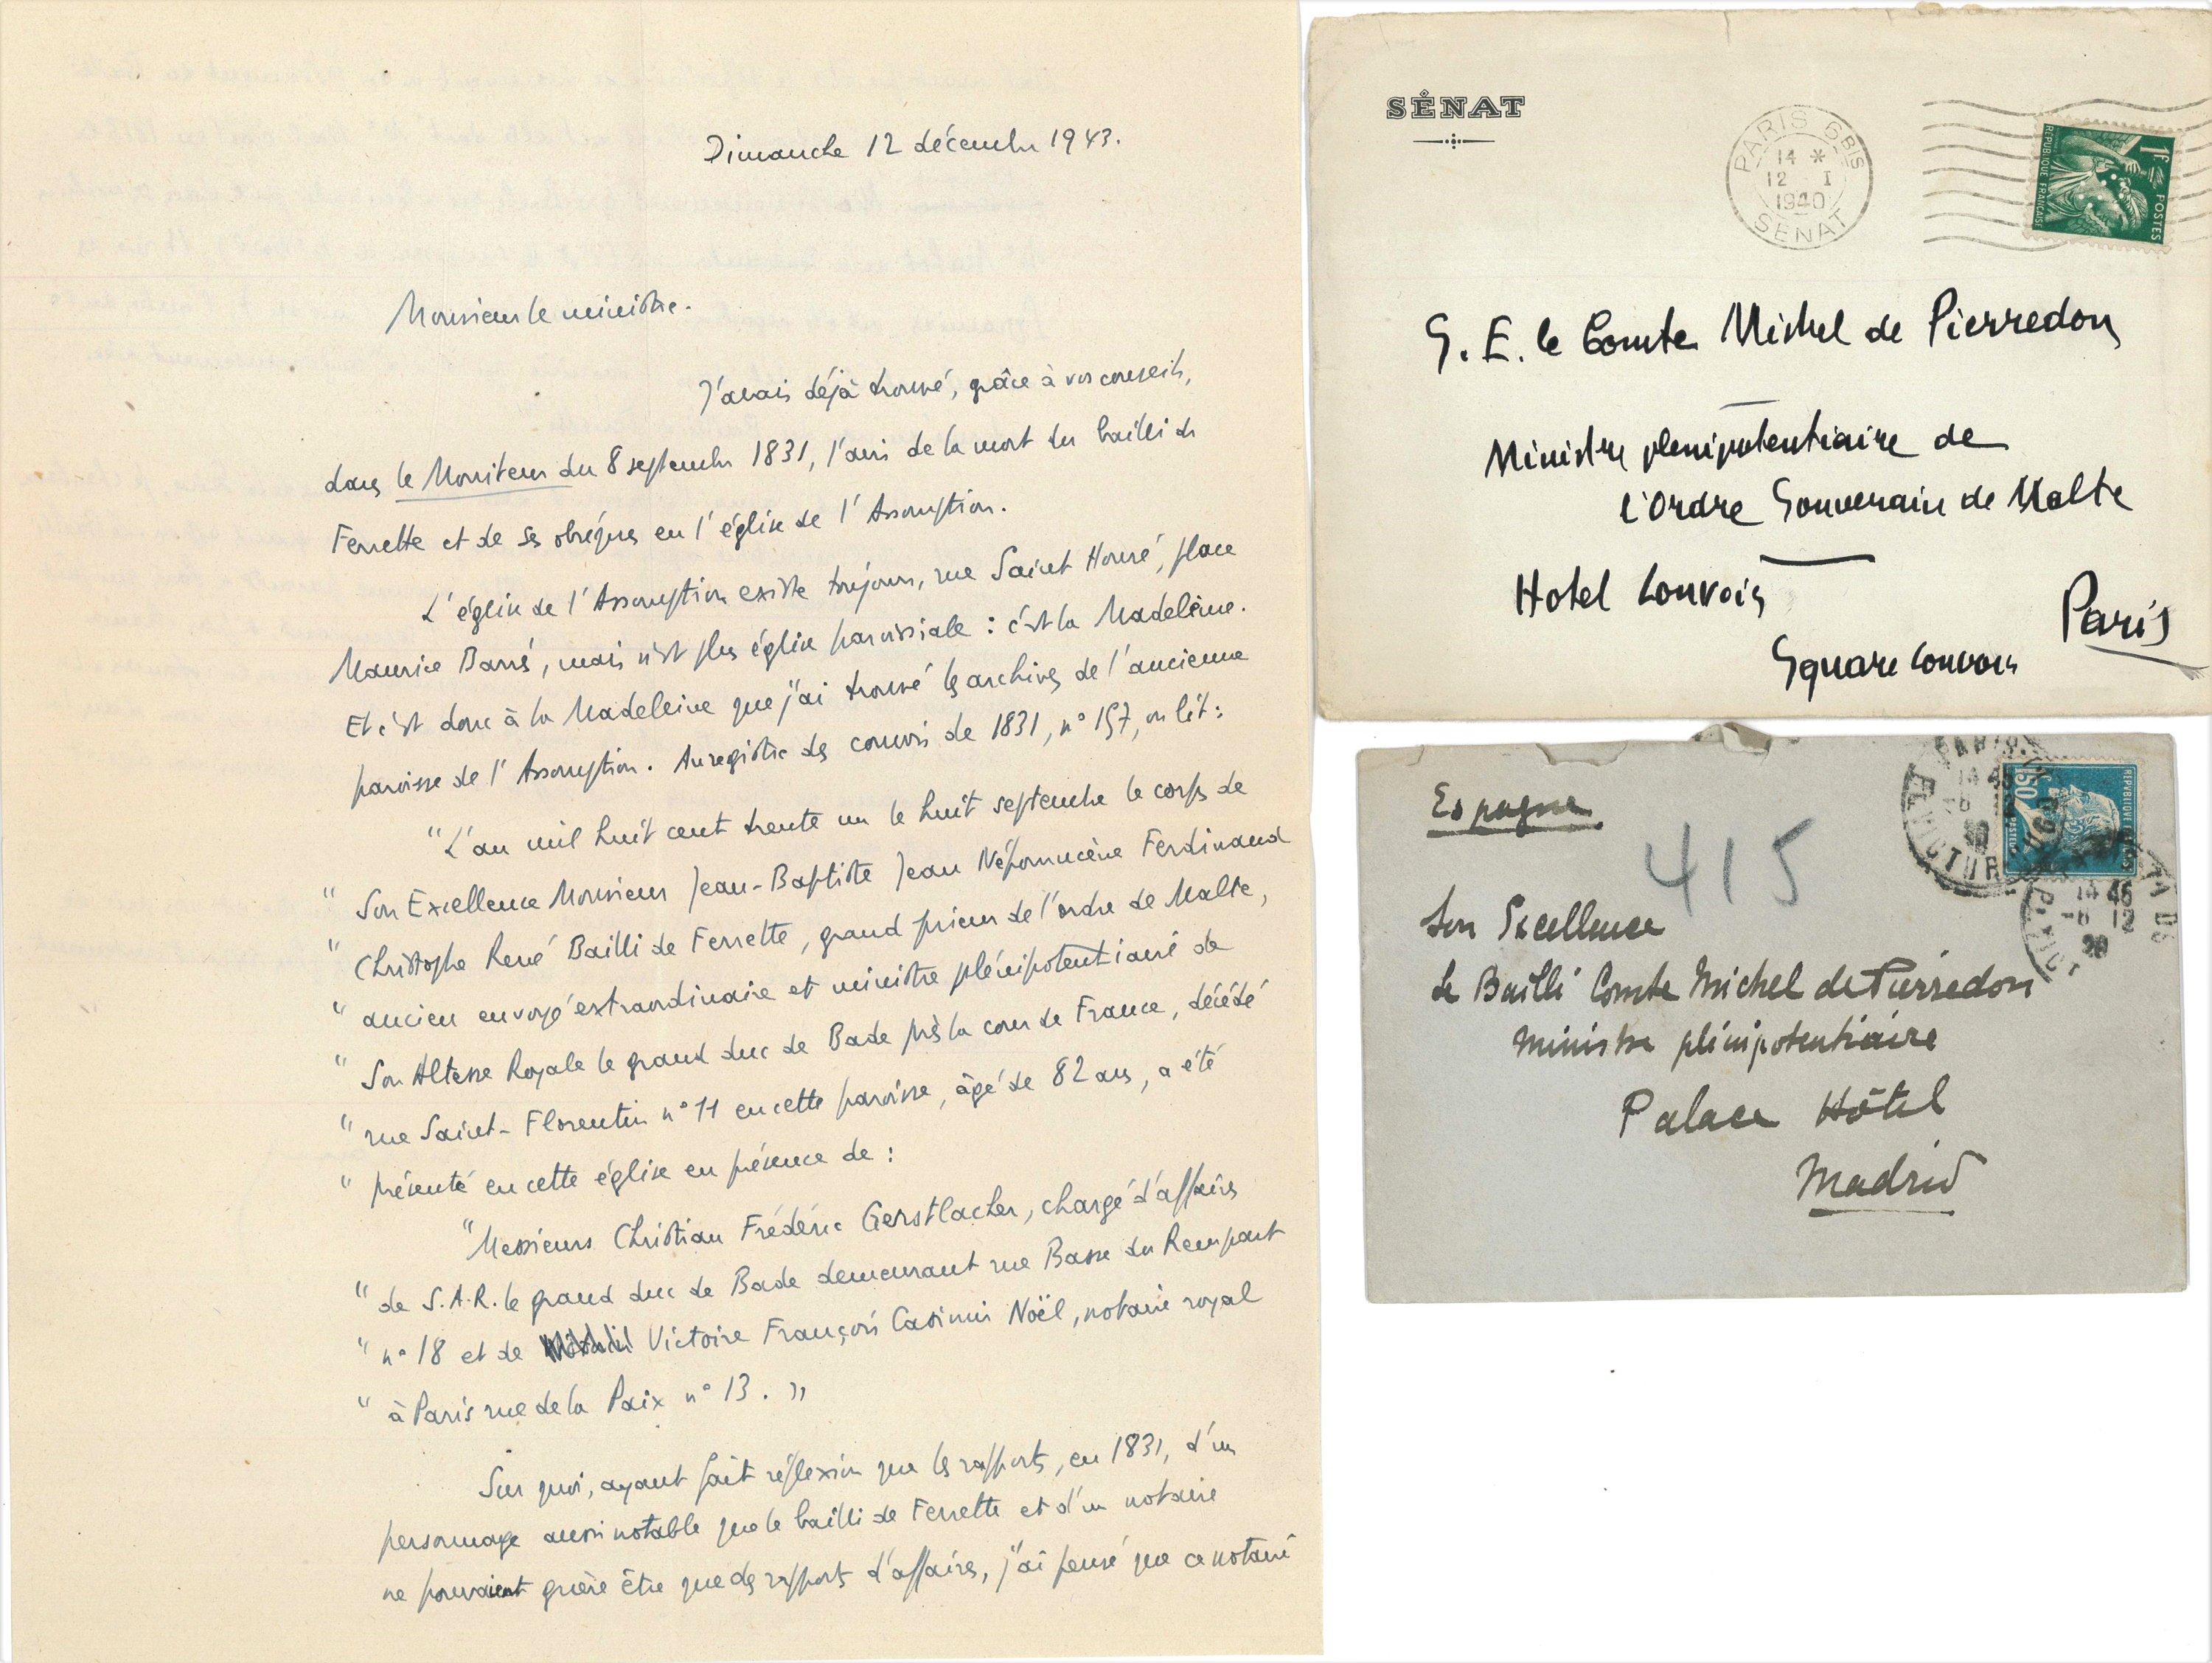 Dimanche 12 décembre 1943.
Monsieur le ministre.
J'avais déjà trouvé, grâce à vos conseils,
dans le Moniteur du 8 septembre 1831, l'avis de la mort du bailli de
Ferrette et de ses obsèques en l'église de l'Assomption.
L'église de l'Assomption existe toujours, rue Saint Honoré, place
Maurice Barrés, mais n'est plus église paroissiale : c'est la Madeleine.
Et c'est donc à la Madeleine que j'ai trouvé les archives de l'ancienne
paroisse de l'Assomption. Au registre des convois de 1831, n° 157, on lit :
"L'an mil huit cent trente un le huit septembre le corps de
" Son Excellence Monsieur Jean-Baptiste Jean Népomucène Ferdinand
" Christophe René Bailli de Ferrette, grand prieur de l'ordre de Malte,
" ancien envoyé extraordinaire et ministre plénipotentiaire de
" Son Altesse Royale le grand duc de Bade près la cour de France, décédé
" rue Saint-Florentin n° 11 en cette paroisse, âgé de 82 ans, a été
" présenté en cette église en présence de :
"Messieurs Christian Frédéric Gerstlacher, chargé d'affaires
" de S.A.R. le grand duc de Bade demeurant rue Basse du Rempart
" n° 18 et de Victoire François Casimir Noël, notaire royal
" à Paris rue de la Paix n° 13. "
Sur quoi, ayant fait réflexion que les rapports, en 1831, d'un
personnage aussi notable que le bailli de Ferrette et d'un notaire
ne pouvaient guère être que des rapports d'affaires, j'ai pensé que ce notaire
SÉNAT
PARIS 6BIS
14 *
12 I
1940
SENAT
1F
POSTES
REPUBLIQUE FRANÇAISE
S. E. le Comte Michel de Pierredon
Ministre plenipotentiaire de
l'Ordre Souverain de Malte
Hotel Louvois
Square Louvois
Paris
Espagne
415
1F50
POSTES
Son Excellence
le Bailli Comte Michel de Pierredon
ministre plénipotentiaire
Palace Hôtel
Madrid